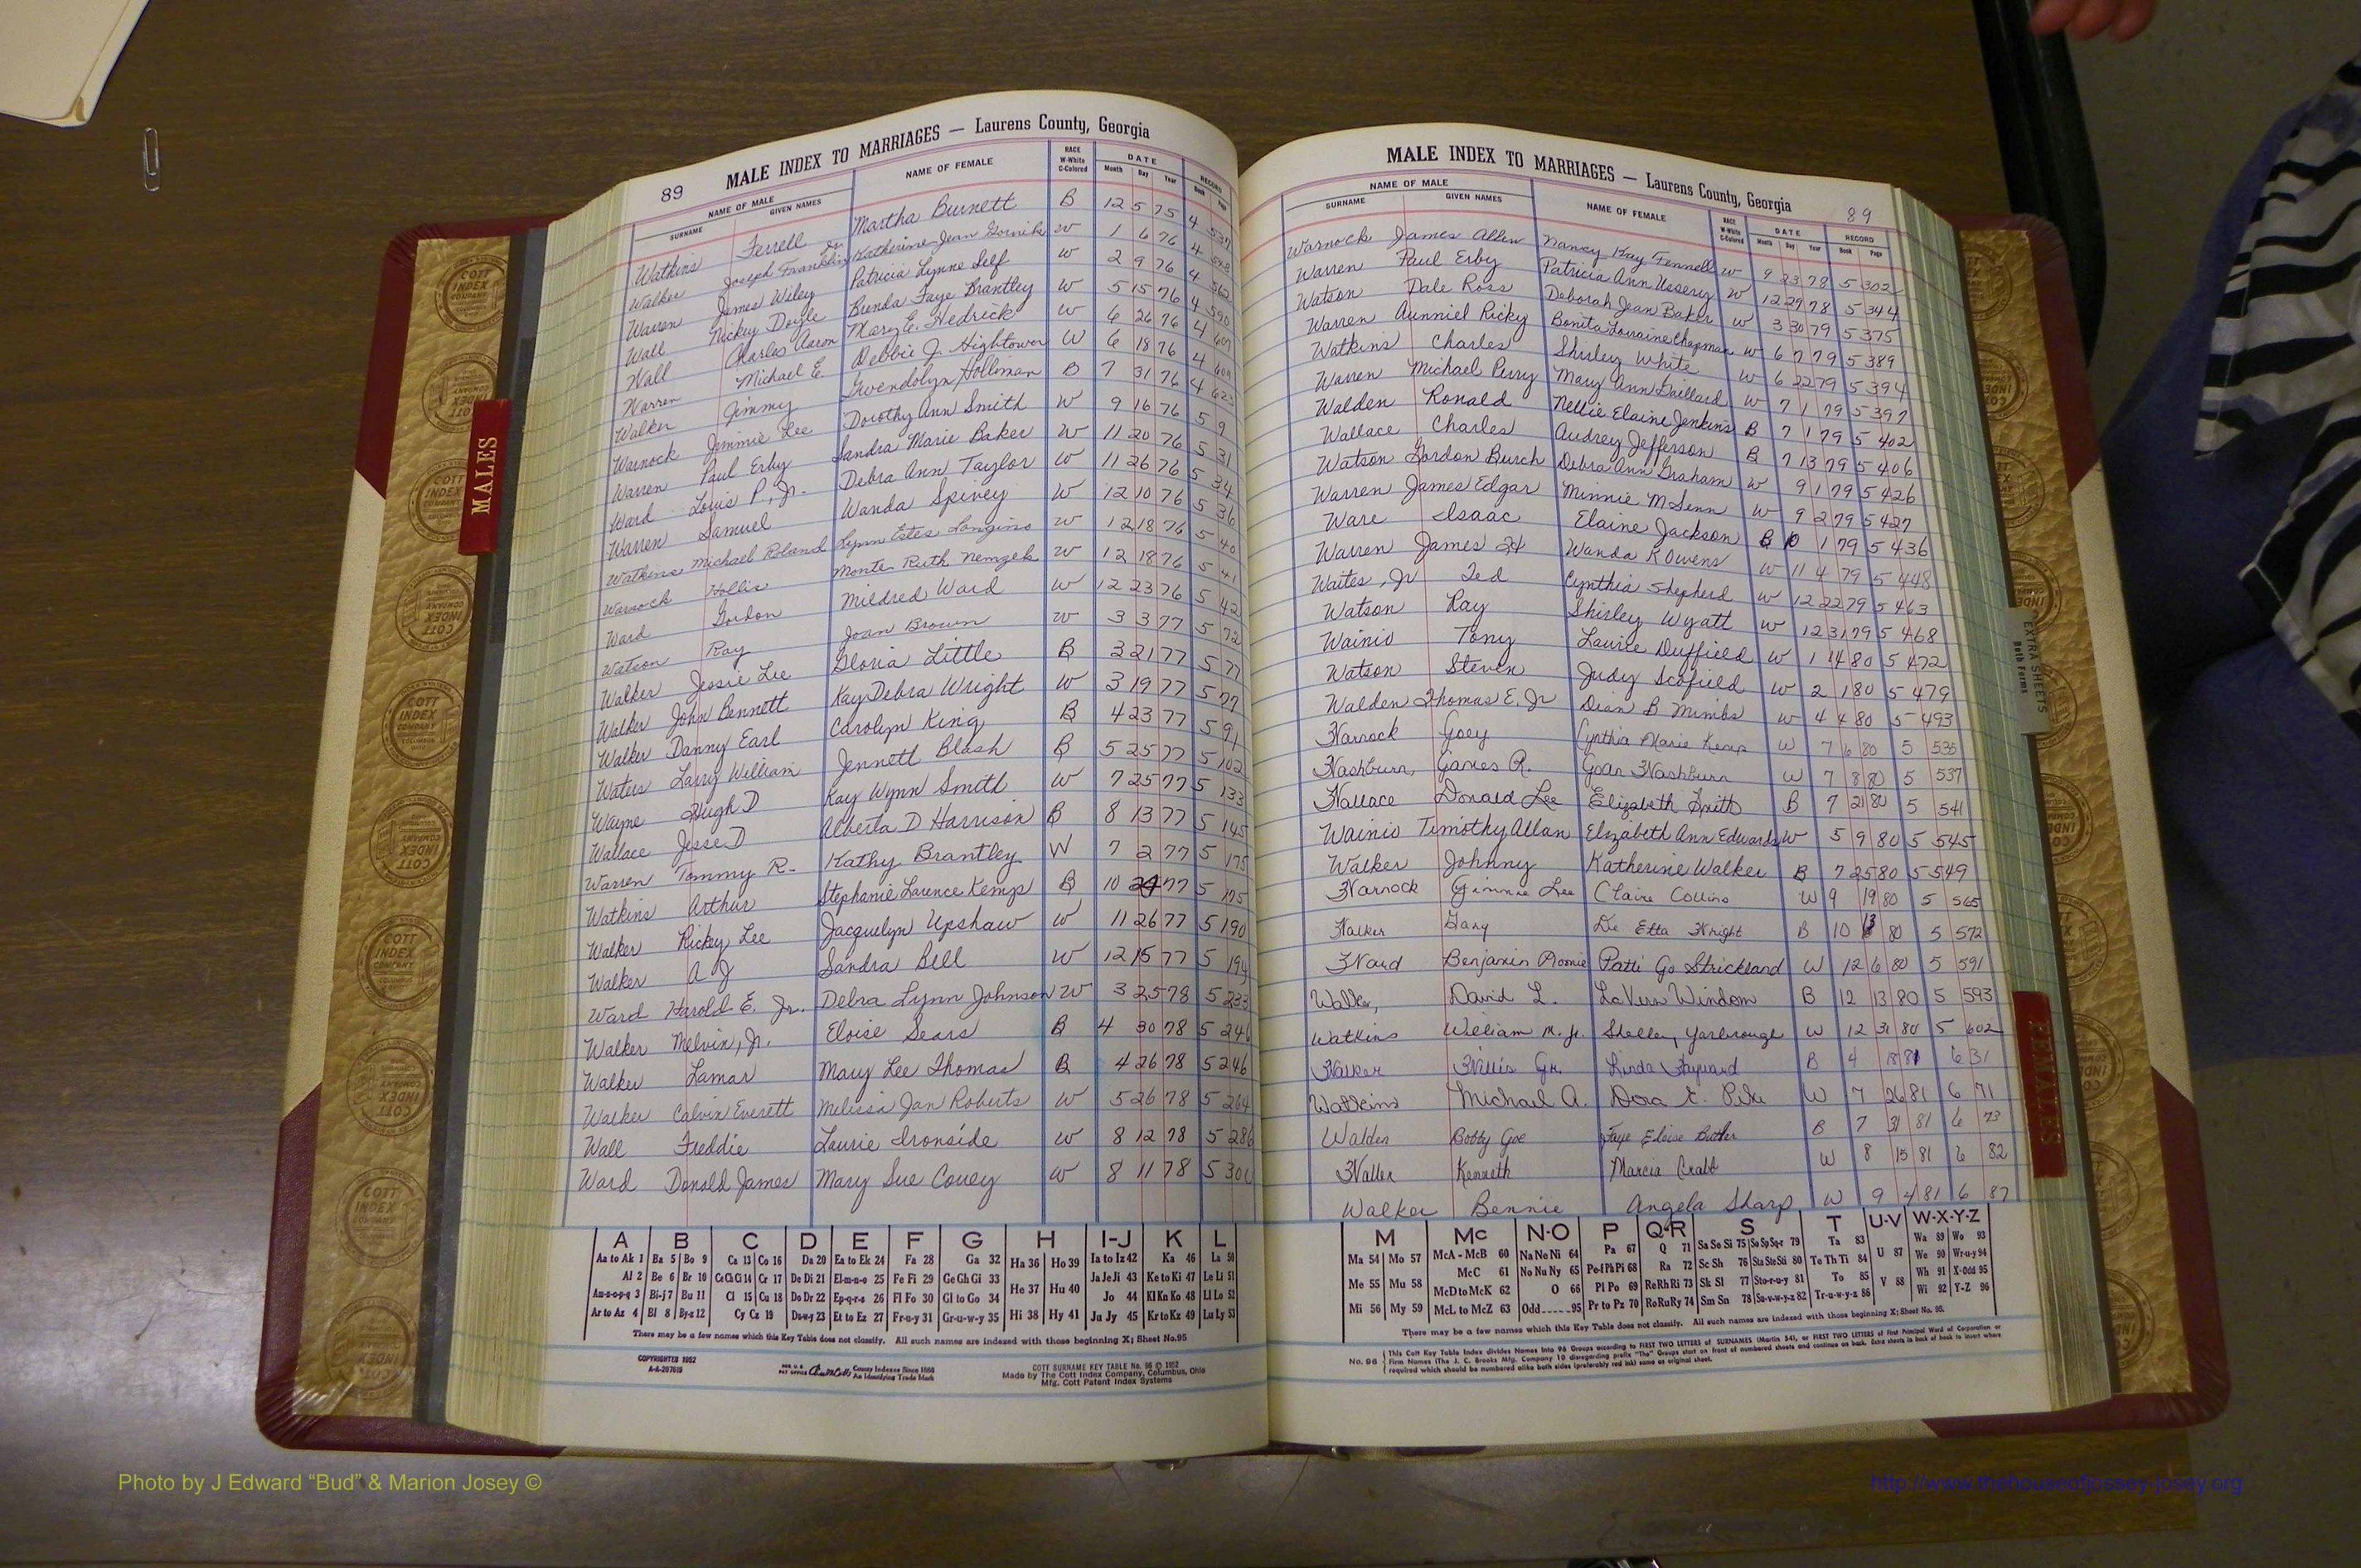 MALE INDEX TO MARRIAGES — Laurens County, Georgia
89
NAME OF MALE NAME OF FEMALE RACE W-White C-Colored DATE RECORD
SURNAME GIVEN NAMES Month Day Year Book Page
Watkins Ferrell Martha Burnett B 12 5 75 4 537
Walker Joseph Franklin Jr Katherine Jean W 1 6 76 4
Warren James Wiley Patricia Lynne Self W 2 9 76 4 562
Wall Nickey Doyle Brenda Faye Brantley W 5 15 76 4 590
Wall Charles Aaron Mary E. Hedrick W 6 26 76 4 607
Warren Michael E. Debbie J. Hightower W 6 18 76 4
Walker Jimmy Gwendolyn Holliman B 7 31 76 4 623
Warnock Jimmie Lee Dorothy Ann Smith W 9 16 76 5 9
Warren Paul Erby Sandra Marie Baker W 11 20 76 5 31
Ward Louis P., Jr. Debra Ann Taylor W 11 26 76 5 34
Warren Samuel Wanda Spivey W 12 10 76 5 36
Watkins Michael Roland Lynn Estes Longino W 12 18 76 5 40
Warnock Hollis Monte Ruth Nemzek W 12 18 76 5 41
Ward Gordon Mildred Ward W 12 23 76 5 42
Watson Ray Joan Brown W 3 3 77 5 72
Walker Jessie Lee Gloria Little B 3 21 77 5 77
Walker John Bennett Kay Debra Wright W 3 19 77 5 77
Walker Danny Earl Carolyn King B 4 23 77 5 91
Waters Larry William Jennett Blash B 5 25 77 5 102
Wayne Hugh D Kay Wynn Smith W 7 25 77 5 133
Wallace Jesse D Alberta D Harrison B 8 13 77 5 145
Warren Tommy R. Kathy Brantley W 7 2 77 5 175
Watkins Arthur Stephanie Larence Kemp B 10 24 77 5 175
Walker Rickey Lee Jacquelyn Upshaw W 11 26 77 5 190
Walker A J Sandra Bell W 12 15 77 5 194
Ward Harold E. Jr. Debra Lynn Johnson W 3 25 78 5 233
Walker Melvin, Jr. Eloise Sears B 4 30 78 5 246
Walker Lamar Mary Lee Thomas B 4 26 78 5 246
Walker Calvin Everett Melissa Jan Roberts W 5 26 78 5 264
Wall Freddie Laurie Ironside W 8 12 78 5 286
Ward Donald James Mary Sue Covey W 8 11 78 5 301
A B C D E F G H I-J K L
Aa to Ak 1 Ba 5 Bo 9 Ca 13 Co 16 Da 20 Ea to Ek 24 Fa 28 Ga 32 Ha 36 Ho 39 Ia to Iz 42 Ka 46 La 50
Al 2 Be 6 Br 10 Ce Ch Ci 14 Cr 17 De Di 21 El-m-n-o 25 Fe Fi 29 Ge Gh Gi 33 He 37 Hu 40 Ja Je Ji 43 Ke to Ki 47 Le Li 51
Am-n-o-p-q 3 Bi-j 7 Bu 11 Cl 15 Cu 18 Do Dr 22 Ep-q-r-s 26 Fl Fo 30 Gl to Go 34 Jo 44 Kl Kn Ko 48 Ll Lo 52
Ar to Az 4 Bl 8 By-z 12 Cy Cz 19 Du-w-y 23 Et to Ez 27 Fr-u-y 31 Gr-u-w-y 35 Hi 38 Hy 41 Ju Jy 45 Kr to Kz 49 Lu Ly 53
There may be a few names which this Key Table does not classify. All such names are indexed with those beginning X; Sheet No.95
COPYRIGHTED 1952
A-A-207619
County Indexes Since 1888
An Identifying Trade Mark
COTT SURNAME KEY TABLE No. 96 © 1952
Made by The Cott Index Company, Columbus, Ohio
Mfg. Cott Patent Index Systems
MALE INDEX TO MARRIAGES — Laurens County, Georgia
89
NAME OF MALE NAME OF FEMALE RACE W-White C-Colored DATE RECORD
SURNAME GIVEN NAMES Month Day Year Book Page
Warnock James Allen Nancy Kay Fennell W 9 23 78 5 302
Warren Paul Erby Patricia Ann Ussery W 12 29 78 5 344
Watson Dale Ross Deborah Jean Baker W 3 30 79 5 375
Warren Aunniel Ricky Bonita Lorraine Chapman W 6 7 79 5 389
Watkins Charles Shirley White W 6 22 79 5 394
Warren Michael Perry Mary Ann Gaillard W 7 1 79 5 397
Walden Ronald Nellie Elaine Jenkins B 7 1 79 5 402
Wallace Charles Audrey Jefferson B 7 13 79 5 406
Watson Gordon Burch Debra Ann Graham W 9 1 79 5 426
Warren James Edgar Minnie M Senn W 9 2 79 5 427
Ware Isaac Elaine Jackson B 10 1 79 5 436
Warren James Wanda K Owens W 11 4 79 5 448
Waites, Jr Ted Cynthia Shepherd W 12 22 79 5 463
Watson Ray Shirley Wyatt W 12 31 79 5 468
Wainio Tony Laurie Duffield W 1 14 80 5 472
Watson Steven Judy Scofield W 2 1 80 5 479
Walden Thomas E. Jr Dian B Mimbs W 4 4 80 5 493
Warnock Joey Cynthia Marie Kemp W 7 6 80 5 535
Washburn, James R. Joan Washburn W 7 8 80 5 537
Wallace Donald Lee Elizabeth Smith B 7 21 80 5 541
Wainio Timothy Allan Elizabeth Ann Edwards W 5 9 80 5 545
Walker Johnny Katherine Walker B 7 25 80 5 549
Warnock Jimmie Lee Claire Collins W 9 19 80 5 565
Walker Gary De Etta Wright B 10 13 80 5 572
Ward Benjamin Roonie Patti Jo Strickland W 12 6 80 5 591
Walker, David L. LaVern Windom B 12 13 80 5 593
Watkins William M. Jr. Shelley Yarbrough W 12 31 80 5 602
Walker Willis Jr. Linda Hayward B 4 18 81 6 31
Watkins Michael A. Dora E. Pike W 7 26 81 6 71
Walden Bobby Joe Faye Eloise Butler B 7 31 81 6 73
Waller Kenneth Marcia Crabb W 8 15 81 6 82
Walker Bennie Angela Sharp W 9 4 81 6 87
M Mc N-O P Q-R S T U-V W-X-Y-Z
Ma 54 Mo 57 McA - McB 60 Na Ne Ni 64 Pa 67 Q 71 Sa Se Si 75 So Sp Sq-r 79 Ta 83 U 87 Wa 89 Wo 93
Me 55 Mu 58 McC 61 No Nu Ny 65 Pe-f Ph Pi 68 Ra 72 Sc Sh 76 Sta Ste Sti 80 Te Th Ti 84 We 90 Wr-u-y 94
McD to McK 62 O 66 Pl Po 69 Re Rh Ri 73 Sk Sl 77 Sto-r-u-y 81 To 85 V 88 Wh 91 X-Odd 95
Mi 56 My 59 McL to McZ 63 Odd 95 Pr to Pz 70 Ro Ru Ry 74 Sm Sn 78 Su-v-w-y-z 82 Tr-u-w-y-z 86 Wi 92 Y-Z 96
There may be a few names which this Key Table does not classify. All such names are indexed with those beginning X; Sheet No. 95.
No. 96 This Cott Key Table Index divides Names into 96 Groups according to FIRST TWO LETTERS of SURNAMES (Martin 54), or FIRST TWO LETTERS of First Principal Word of Corporation or
Firm Names (The J. C. Brooks Mfg. Company 10 disregarding prefix "The" Groups start on front of numbered sheets and continue on back. Extra sheets in back of book to insert where
required which should be numbered alike both sides (preferably red ink) same as original sheet.
MALES
FEMALES
EXTRA SHEETS
Both Forms
COTT INDEX COMPANY
Photo by J Edward “Bud” & Marion Josey ©
http://www.thehouseofjossey-josey.org